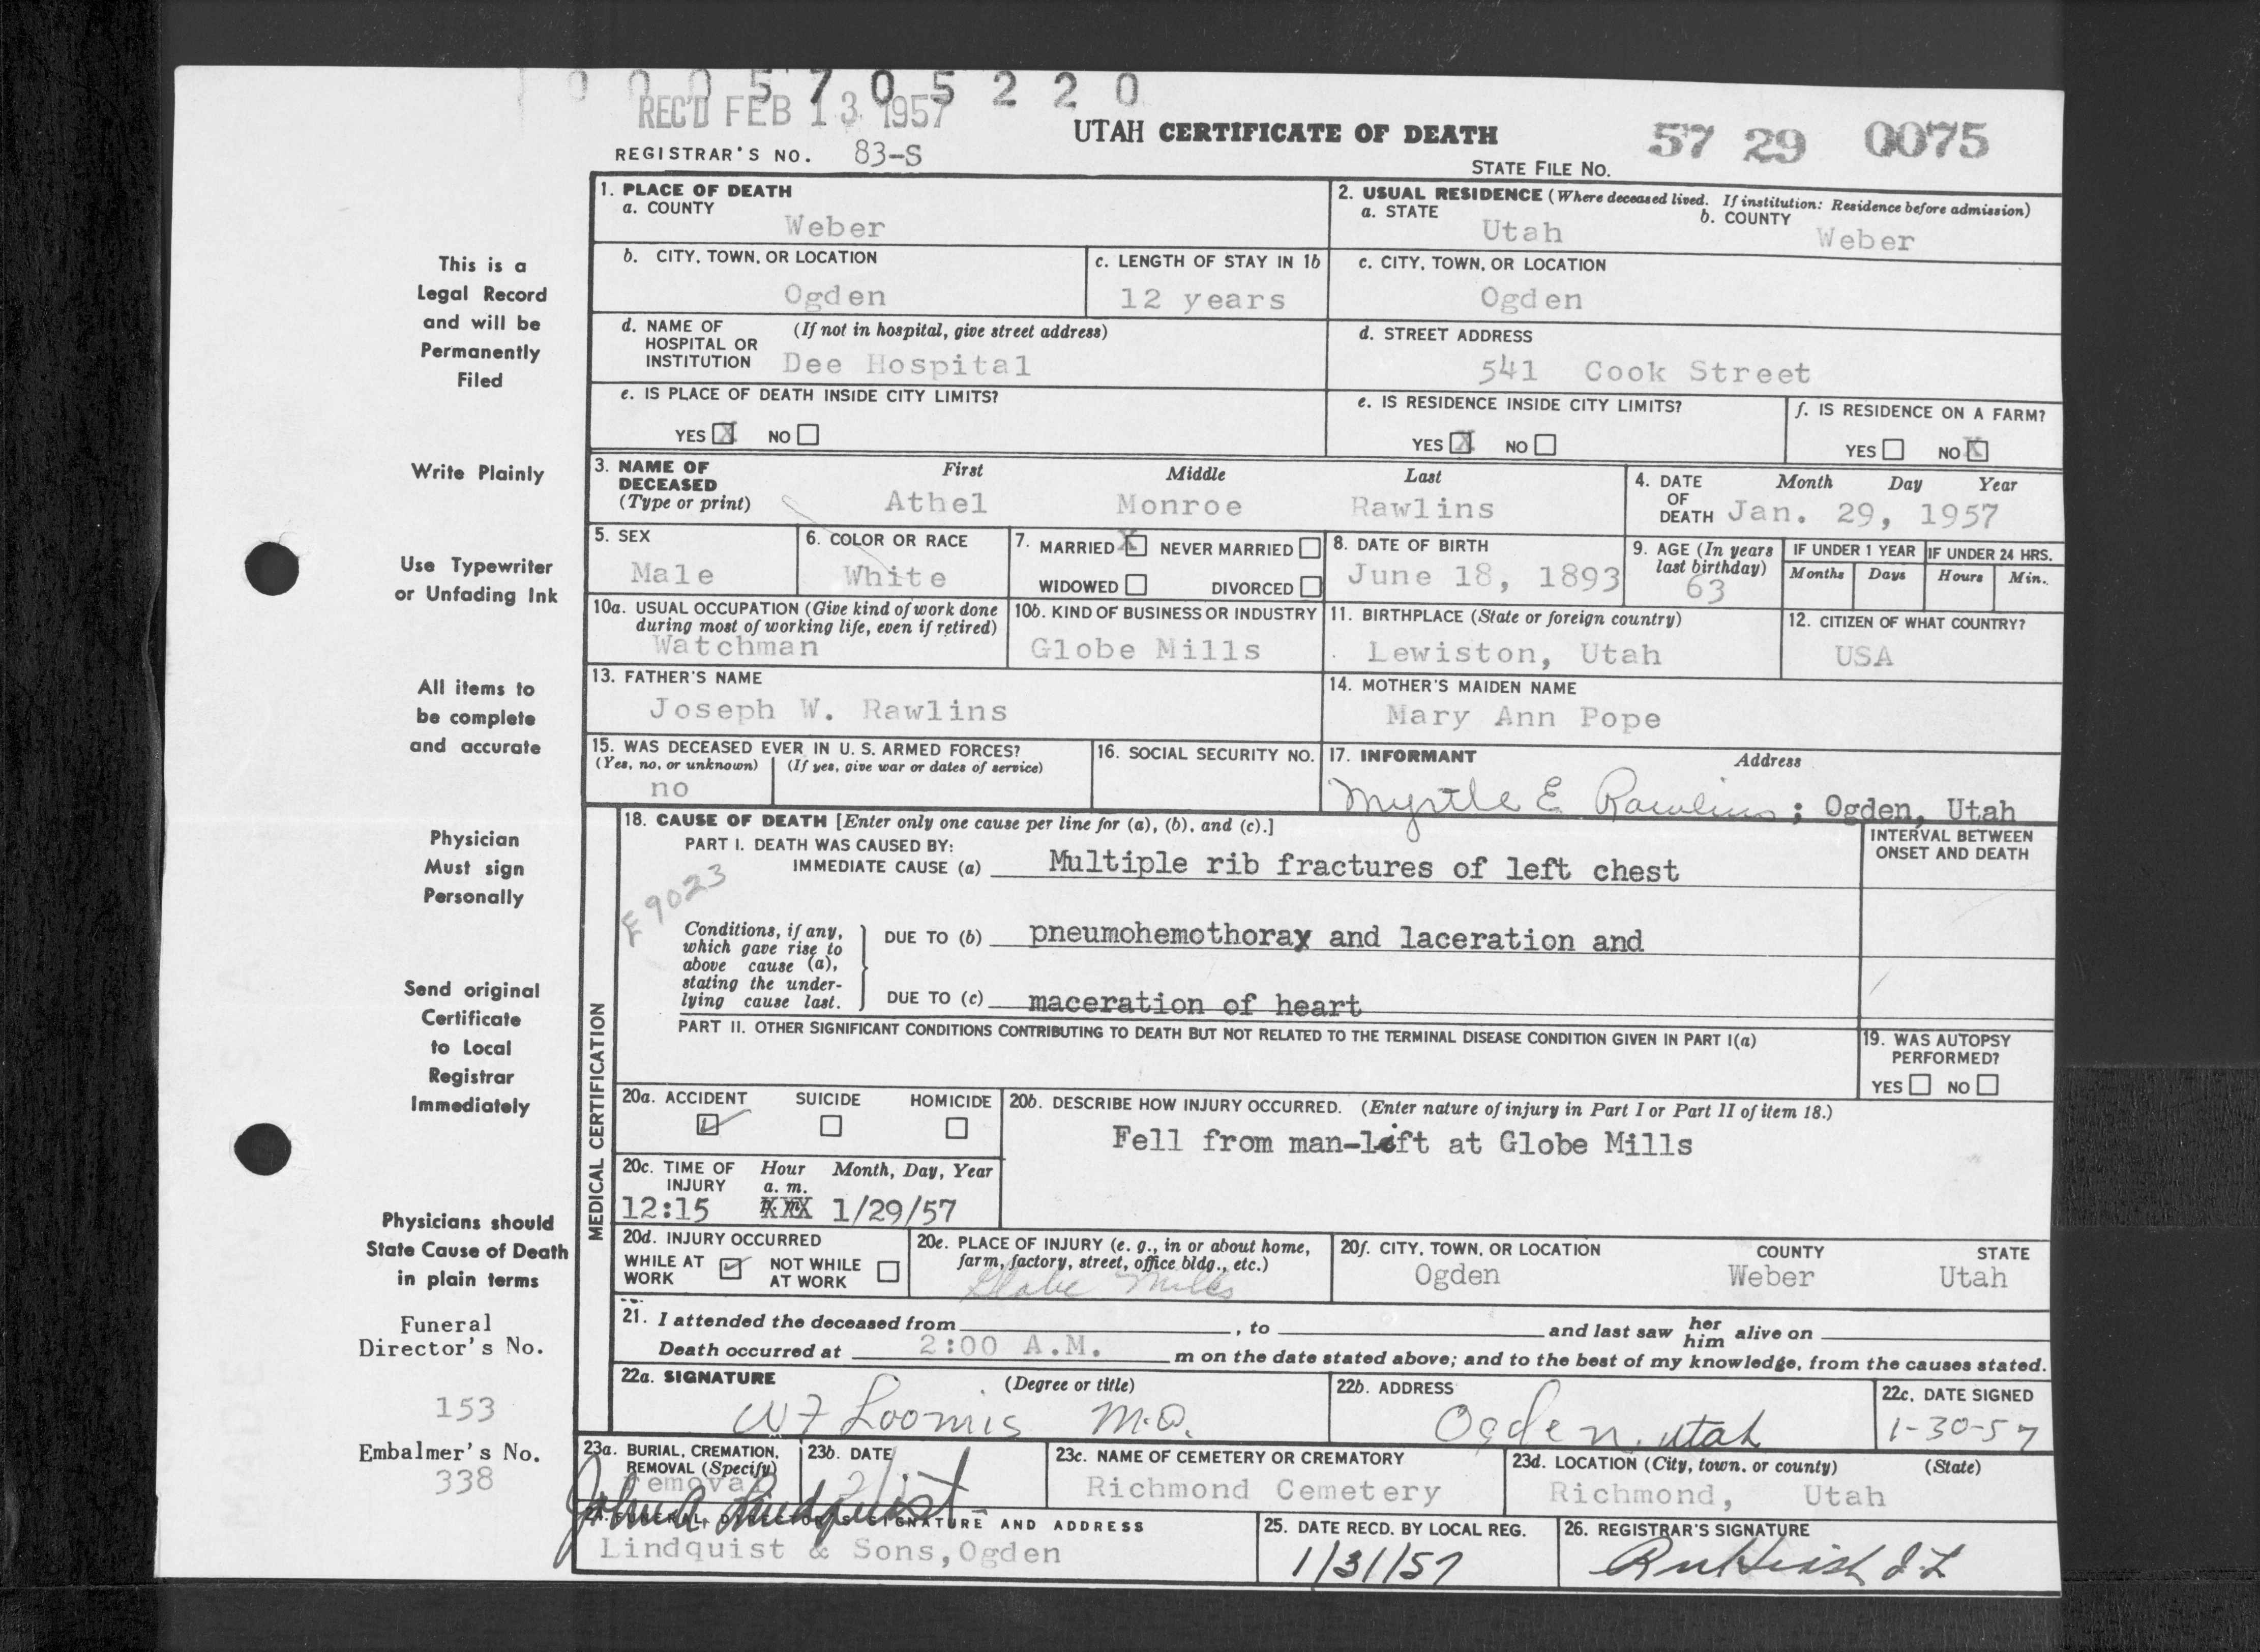 0005705220
REC'D FEB 13 1957
UTAH CERTIFICATE OF DEATH
57 29 0075
REGISTRAR'S NO. 83-S
STATE FILE NO.
1. PLACE OF DEATH
a. COUNTY
Weber
2. USUAL RESIDENCE (Where deceased lived. If institution: Residence before admission)
a. STATE
Utah
b. COUNTY
Weber
b. CITY, TOWN, OR LOCATION
Ogden
c. LENGTH OF STAY IN 1b
12 years
c. CITY, TOWN, OR LOCATION
Ogden
d. NAME OF HOSPITAL OR INSTITUTION
(If not in hospital, give street address)
Dee Hospital
d. STREET ADDRESS
541 Cook Street
e. IS PLACE OF DEATH INSIDE CITY LIMITS?
YES X NO
e. IS RESIDENCE INSIDE CITY LIMITS?
YES X NO
f. IS RESIDENCE ON A FARM?
YES NO X
3. NAME OF DECEASED
(Type or print)
First Middle Last
Athel Monroe Rawlins
4. DATE OF DEATH
Month Day Year
Jan. 29, 1957
5. SEX
Male
6. COLOR OR RACE
White
7. MARRIED X NEVER MARRIED
WIDOWED DIVORCED
8. DATE OF BIRTH
June 18, 1893
9. AGE (In years last birthday)
63
IF UNDER 1 YEAR
Months Days
IF UNDER 24 HRS.
Hours Min.
10a. USUAL OCCUPATION (Give kind of work done during most of working life, even if retired)
Watchman
10b. KIND OF BUSINESS OR INDUSTRY
Globe Mills
11. BIRTHPLACE (State or foreign country)
Lewiston, Utah
12. CITIZEN OF WHAT COUNTRY?
USA
13. FATHER'S NAME
Joseph W. Rawlins
14. MOTHER'S MAIDEN NAME
Mary Ann Pope
15. WAS DECEASED EVER IN U. S. ARMED FORCES?
(Yes, no, or unknown) (If yes, give war or dates of service)
no
16. SOCIAL SECURITY NO.
17. INFORMANT Address
Myrtle E Rawlins; Ogden, Utah
MEDICAL CERTIFICATION
18. CAUSE OF DEATH [Enter only one cause per line for (a), (b), and (c).]
INTERVAL BETWEEN ONSET AND DEATH
PART I. DEATH WAS CAUSED BY:
IMMEDIATE CAUSE (a) Multiple rib fractures of left chest
E9023
Conditions, if any, which gave rise to above cause (a), stating the underlying cause last.
DUE TO (b) pneumohemothorax and laceration and
DUE TO (c) maceration of heart
PART II. OTHER SIGNIFICANT CONDITIONS CONTRIBUTING TO DEATH BUT NOT RELATED TO THE TERMINAL DISEASE CONDITION GIVEN IN PART I(a)
19. WAS AUTOPSY PERFORMED?
YES NO
20a. ACCIDENT SUICIDE HOMICIDE
20b. DESCRIBE HOW INJURY OCCURRED. (Enter nature of injury in Part I or Part II of item 18.)
Fell from man-lift at Globe Mills
20c. TIME OF INJURY
Hour Month, Day, Year
a. m.
12:15 1/29/57
20d. INJURY OCCURRED
WHILE AT WORK NOT WHILE AT WORK
20e. PLACE OF INJURY (e. g., in or about home, farm, factory, street, office bldg., etc.)
Globe Mills
20f. CITY, TOWN, OR LOCATION COUNTY STATE
Ogden Weber Utah
21. I attended the deceased from , to and last saw her him alive on
Death occurred at 2:00 A.M. m on the date stated above; and to the best of my knowledge, from the causes stated.
22a. SIGNATURE (Degree or title)
W F Loomis M.D.
22b. ADDRESS
Ogden, Utah
22c. DATE SIGNED
1-30-57
23a. BURIAL, CREMATION, REMOVAL (Specify)
removal
23b. DATE
23c. NAME OF CEMETERY OR CREMATORY
Richmond Cemetery
23d. LOCATION (City, town, or county) (State)
Richmond, Utah
John A Lindquist
24. FUNERAL DIRECTOR'S SIGNATURE AND ADDRESS
Lindquist & Sons, Ogden
25. DATE RECD. BY LOCAL REG.
1/31/57
26. REGISTRAR'S SIGNATURE
This is a
Legal Record
and will be
Permanently
Filed
Write Plainly
Use Typewriter
or Unfading Ink
All items to
be complete
and accurate
Physician
Must sign
Personally
Send original
Certificate
to Local
Registrar
Immediately
Physicians should
State Cause of Death
in plain terms
Funeral
Director's No.
153
Embalmer's No.
338